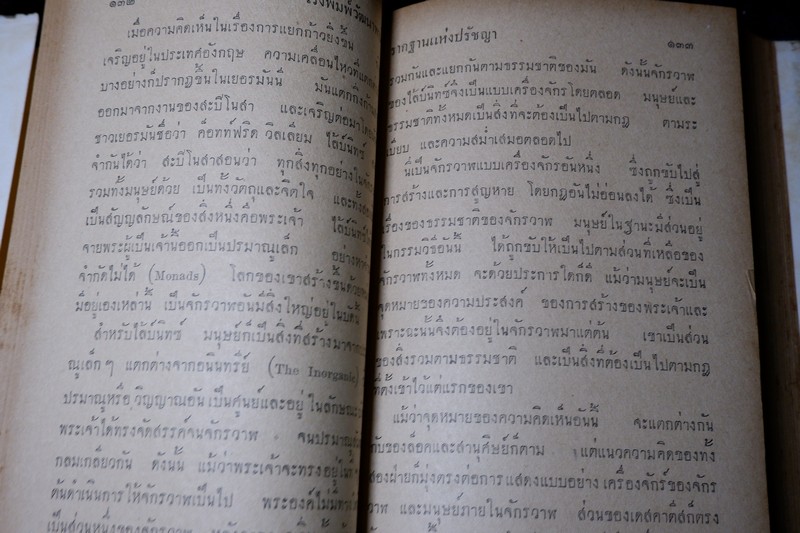 ๑๓๒
โรงพิมพ์วัฒนา
เมื่อความคิดเห็นในเรื่องการแยกก้าวยิ่งขึ้น
เจริญอยู่ในประเทศอังกฤษ ความเคลื่อนไหวที่แตก
บางอย่างก็ปรากฏขึ้นในเยอรมันนี มันแตกกิ่งก้าน
ออกมาจากงานของสะปิโนสา และเจริญต่อมาโดย
ชาวเยอรมันชื่อว่า ค็อทท์ฟริด วิลเลี่ยม ไล้บ์นิทซ์
จำกันได้ว่า สะปิโนสาสอนว่า ทุกสิ่งทุกอย่างใน
รวมทั้งมนุษย์ด้วย เป็นทั้งวัตถุและจิตใจ และทั้ง
เป็นสัญญลักษณ์ของสิ่งหนึ่งคือพระเจ้า ไล้บ์นิทซ์
จ่ายพระผู้เป็นเจ้านี้ออกเป็นปรมาณูเล็ก อย่าง
จำกัดไม่ได้ (Monads) โลกของเขาสร้างขึ้นด้วย
มีอยู่เองเหล่านี้ เป็นจักรวาพอันมีสิ่งใหญ่อยู่ใน
สำหรับไล้บ์นิทซ์ มนุษย์ก็เป็นสิ่งที่สร้างมาจาก
ณูเล็กๆ แตกต่างจากอนินทรีย์ (The Inorganic
ปรมาณูหรือวิญญาณอันเป็นศูนย์และอยู่ในลักษณะ
พระเจ้าได้ทรงจัดสรรค์จนจักรวาพ จนปรมาณู
กลมเกลียวกัน ดังนั้น แม้ว่าพระเจ้าจะทรงอยู่ใน
ต้นดำเนินการให้จักรวาพเป็นไป พระองค์ไม่มี
เป็นส่วนหนึ่งของจักรวาพ
รากฐานแห่งปรัชญา
๑๓๓
รวมกันและแยกกันตามธรรมชาติของมัน ดังนั้นจักรวาพ
ของไล้บ์นิทซ์จึงเป็นแบบเครื่องจักรโดยตลอด มนุษย์และ
ธรรมชาติทั้งหมดเป็นสิ่งที่จะต้องเป็นไปตามกฎ ตามระ
เบียบ และความสม่ำเสมอตลอดไป
นี่เป็นจักรวาพแบบเครื่องจักรอันหนึ่ง ซึ่งถูกขับไปสู่
การสร้างและการสูญหาย โดยกฎอันไม่อ่อนลงได้ ซึ่งเป็น
เรื่องของธรรมชาติของจักรวาพ มนุษย์ในฐานะมีส่วนอยู่
ในกรรมวิธีอันนี้ ได้ถูกขับให้เป็นไปตามส่วนที่เหลือของ
จักรวาพทั้งหมด จะด้วยประการใดก็ดี แม้ว่ามนุษย์จะเป็น
จุดหมายของความประสงค์ ของการสร้างของพระเจ้าและ
เพราะฉะนั้นจึงต้องอยู่ในจักรวาพมาแต่ต้น เขาเป็นส่วน
ของสิ่งรวมตามธรรมชาติ และเป็นสิ่งที่ต้องเป็นไปตามกฎ
ที่ตั้งเข้าไว้แต่แรกของเขา
แม้ว่าจุดหมายของความคิดเห็นอันนี้ จะแตกต่างกัน
กับของล็อคและสานุศิษย์ก็ตาม แต่แนวความคิดของทั้ง
สองฝ่ายก็มุ่งตรงต่อการแสดงแบบอย่างเครื่องจักร์ของจักร
วาพ และมนุษย์ภายในจักรวาพ ส่วนของเดสคาติสก็ตรง